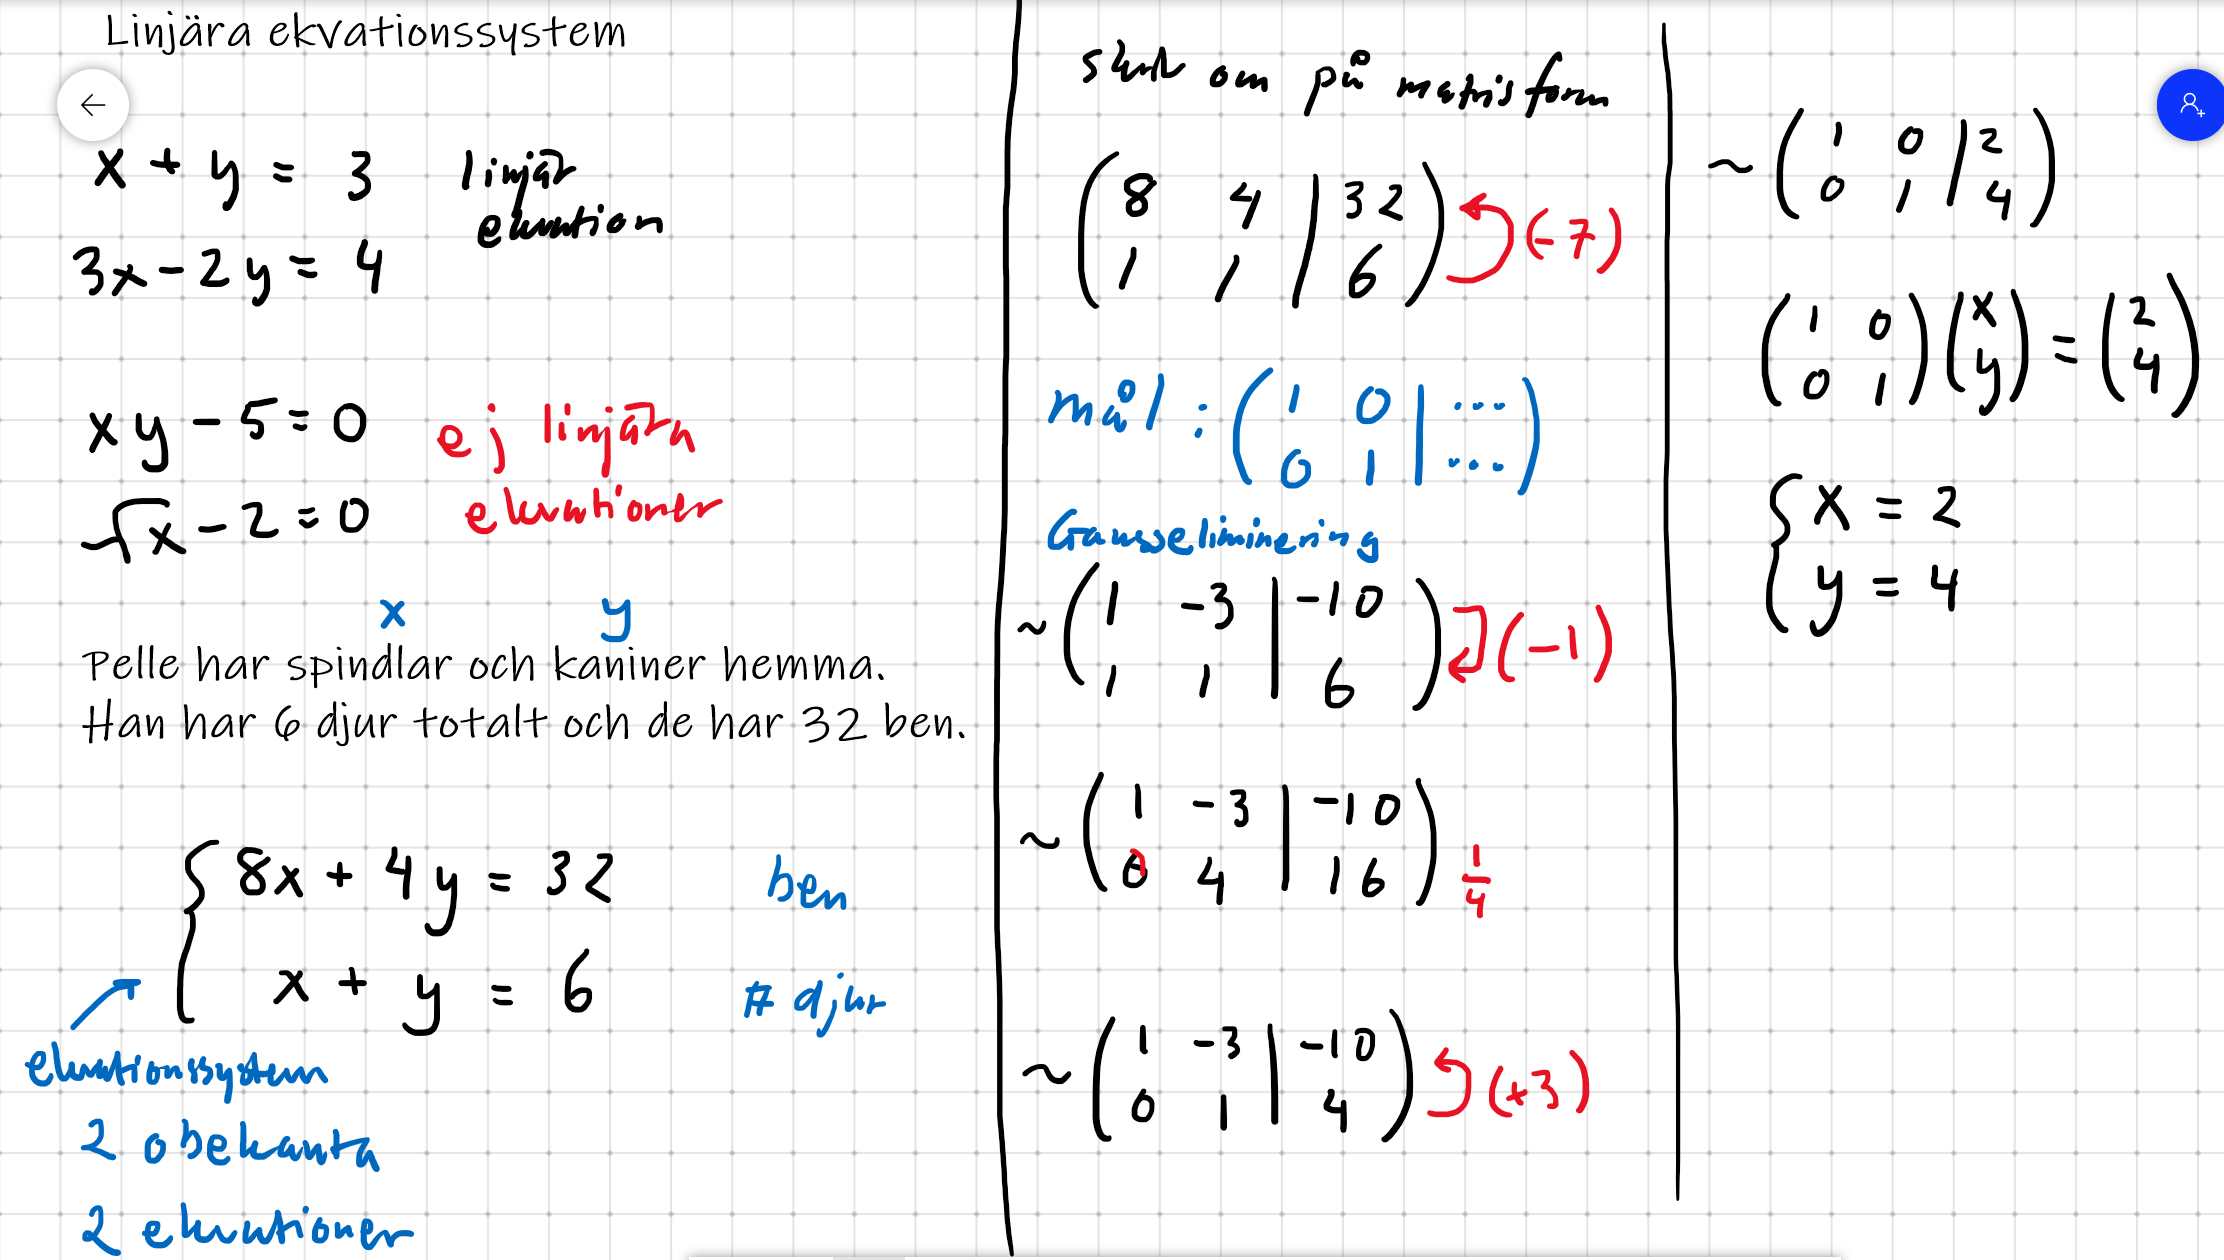 Linjära ekvationssystem
x + y = 3 linjär
ekvation
3x - 2y = 4
xy - 5 = 0 ej linjära
√x - 2 = 0 ekvationer
x y
Pelle har spindlar och kaniner hemma.
Han har 6 djur totalt och de har 32 ben.
8x + 4y = 32 ben
x + y = 6 # djur
ekvationssystem
2 obekanta
2 ekvationer
skriv om på matrisform
( 8 4 | 32 )
( 1 1 | 6 ) (-7)
mål : ( 1 0 | ... )
( 0 1 | ... )
Gausseliminering
~ ( 1 -3 | -10 )
( 1 1 | 6 ) (-1)
~ ( 1 -3 | -10 )
( 0 4 | 16 ) 1/4
~ ( 1 -3 | -10 )
( 0 1 | 4 ) (+3)
~ ( 1 0 | 2 )
( 0 1 | 4 )
( 1 0 ) ( x ) = ( 2 )
( 0 1 ) ( y ) ( 4 )
{ x = 2
y = 4